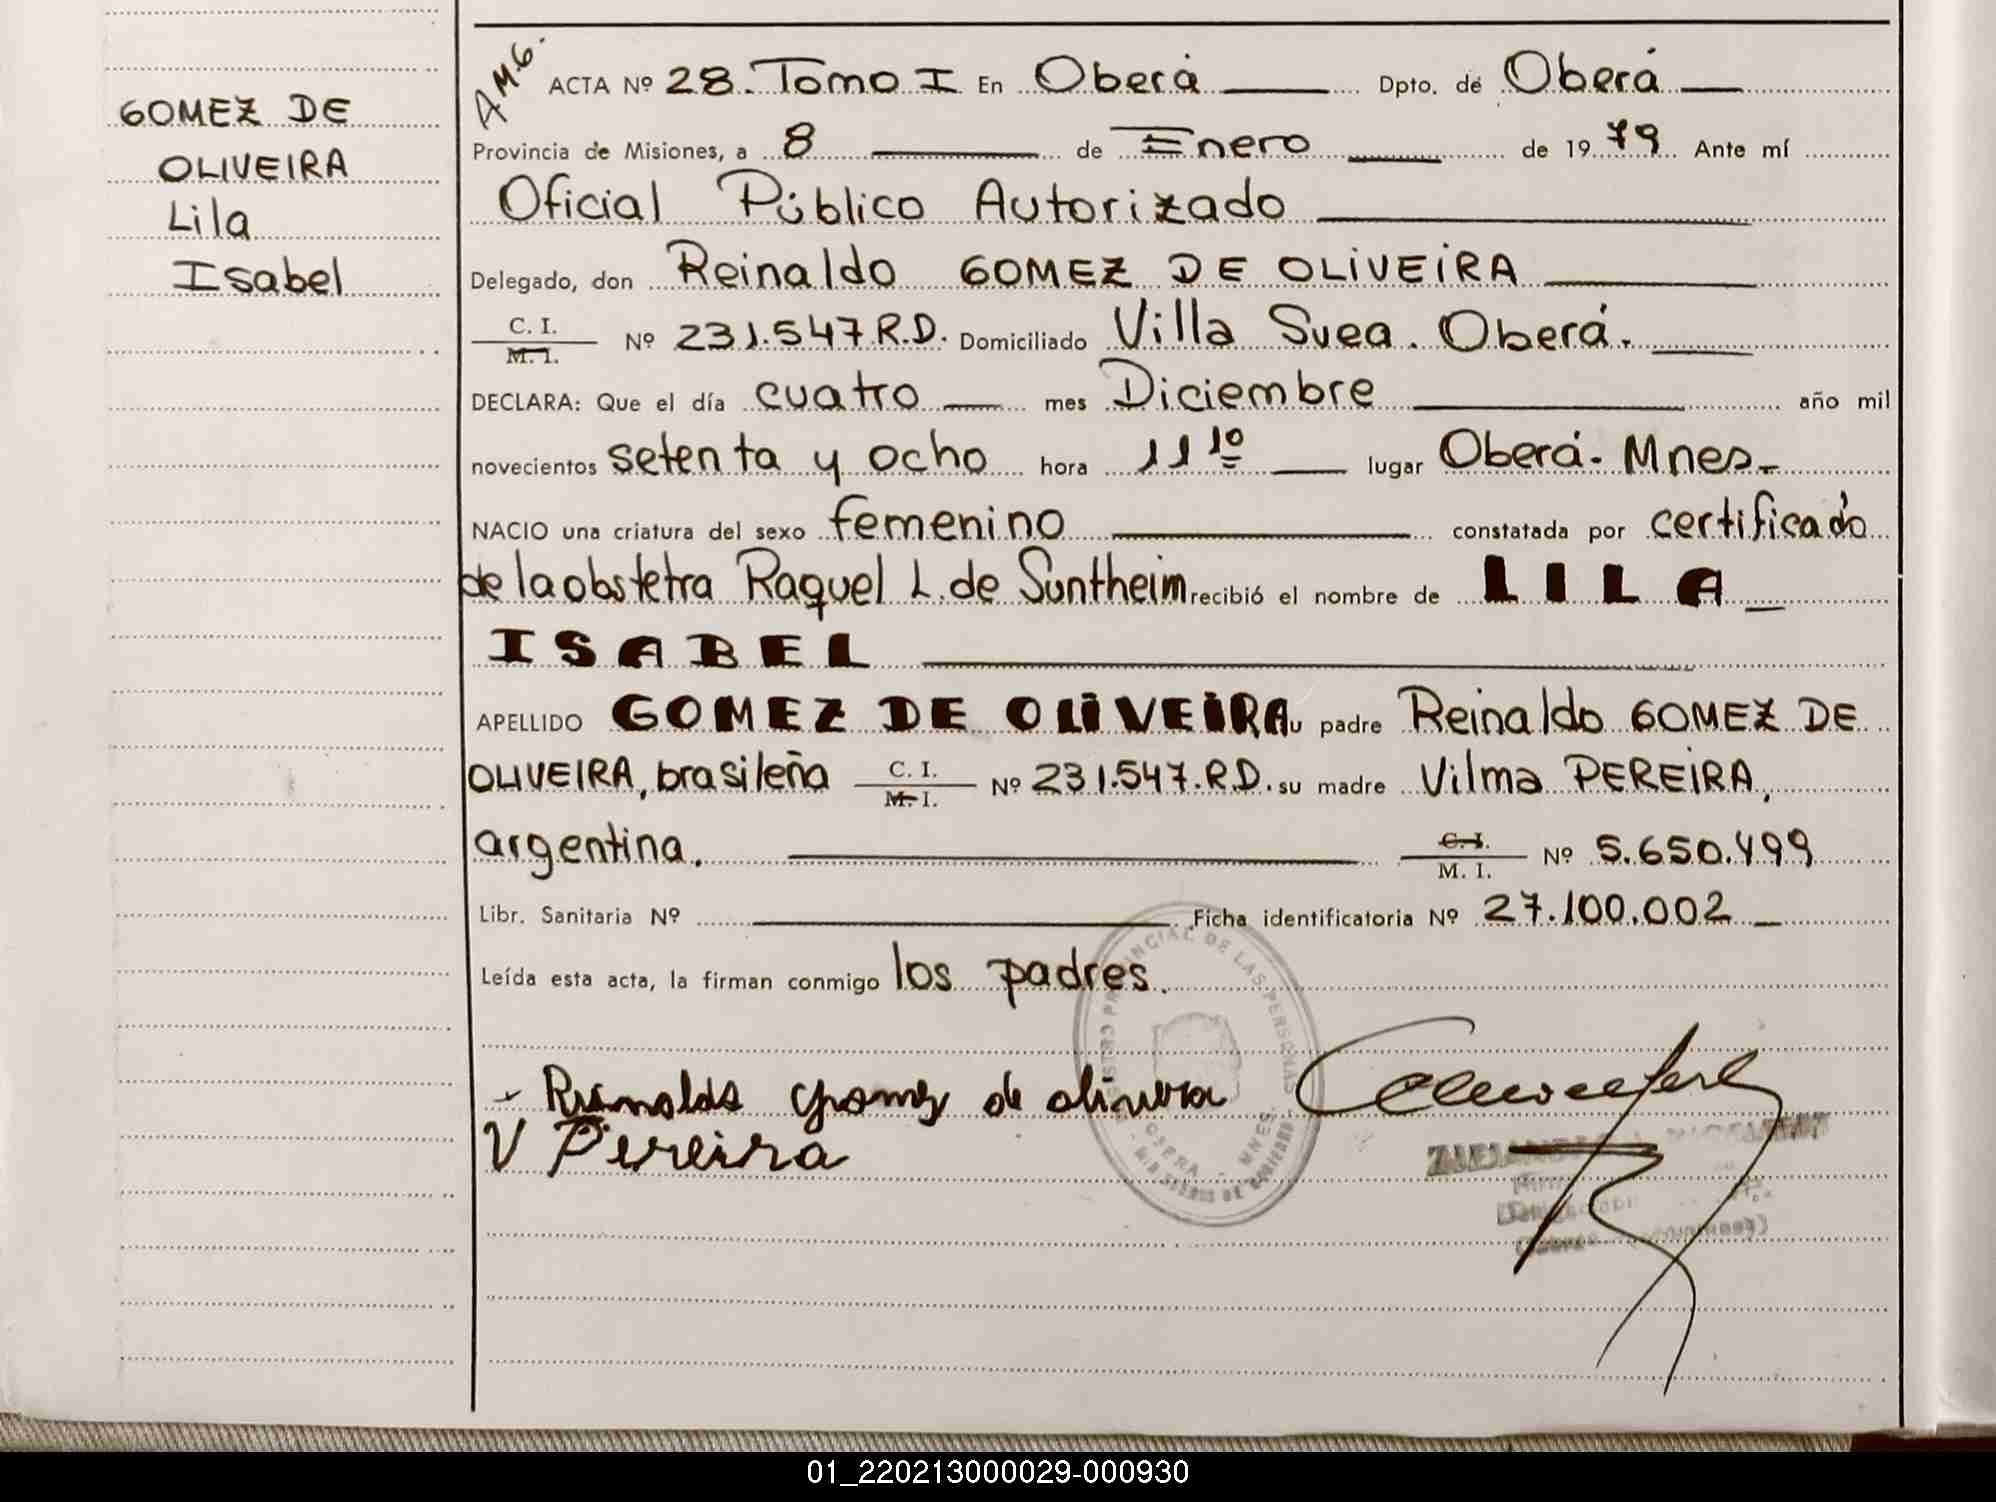 GOMEZ DE
OLIVEIRA
Lila
Isabel
A.M.G.
ACTA Nº 28. Tomo I En Oberá Dpto. de Oberá
Provincia de Misiones, a 8 de Enero de 1979 Ante mí
Oficial Público Autorizado
Delegado, don Reinaldo GOMEZ DE OLIVEIRA
C. I.
M. I. Nº 231.547 R.D. Domiciliado Villa Svea. Oberá.
DECLARA: Que el día cuatro mes Diciembre año mil
novecientos setenta y ocho hora 11 10 lugar Oberá - Mnes.
NACIO una criatura del sexo femenino constatada por certificado
de la obstetra Raquel L. de Suntheim recibió el nombre de LILA
ISABEL
APELLIDO GOMEZ DE OLIVEIRA u padre Reinaldo GOMEZ DE
OLIVEIRA, brasileña C. I.
M. I. Nº 231.547.R.D. su madre Vilma PEREIRA,
argentina. C. I.
M. I. Nº 5.650.499
Libr. Sanitaria Nº Ficha identificatoria Nº 27.100.002
Leída esta acta, la firman conmigo los padres.
Reinaldo Gomez de Oliveira
V Pereira
REGISTRO PROVINCIAL DE LAS PERSONAS
OBERA - MNES.
MINISTERIO DE GOBIERNO
01_220213000029-000930